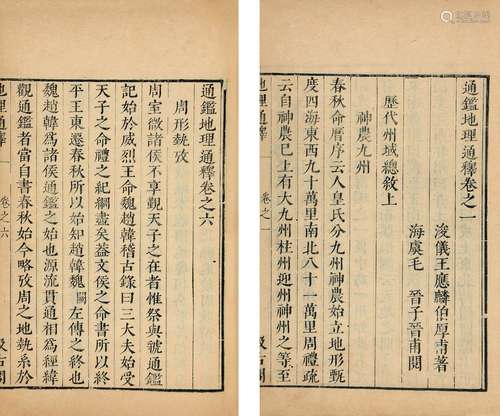 通鑑地理通釋卷之一
浚儀王應麟伯厚甫著
海虞毛 晉子晉甫閱
歷代州域總敘上
神農九州
春秋命曆序云人皇氏分九州神農始立地形甄
度四海東西九十萬里南北八十一萬里周禮疏
云自神農已上有大九州柱州迎州神州之等至
地理通釋 卷之一 汲古閣
通鑑地理通釋卷之六
周形埶攷
周室微諸侯不享覲天子之在者惟祭與號通鑑
記始於威烈王命魏趙韓稽古錄曰三大夫始受
天子之命禮之紀綱盡矣益文侯之命書所以終
平王東遷春秋所以始知趙韓魏 左傳之終也
魏趙韓為諸侯通鑑之始也源流貫通相為經緯
觀通鑑者當自書春秋始今略攷周之地埶系於
地理通釋 卷之六 汲古閣